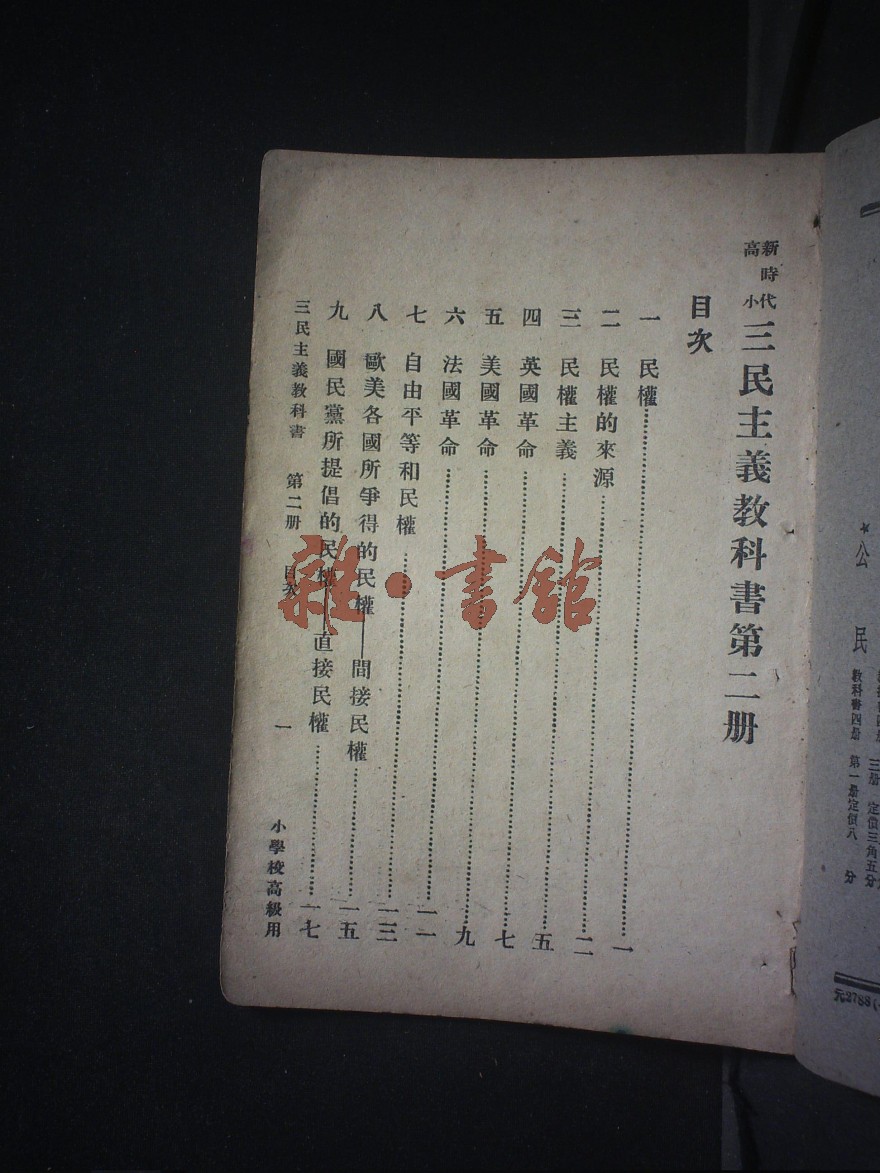 三册 定價三角五分
★公民
教科書四册 第一册定價八分
元2788(
新時代
高小
三民主義教科書第二册
目次
一 民權……一
二 民權的來源……二
三 民權主義……五
四 英國革命……七
五 美國革命……九
六 法國革命……一一
七 自由平等和民權……一三
八 歐美各國所爭得的民權——間接民權……一五
九 國民黨所提倡的民權——直接民權……一七
三民主義教科書 第二册 目次 一 小學校高級用
雜·書館